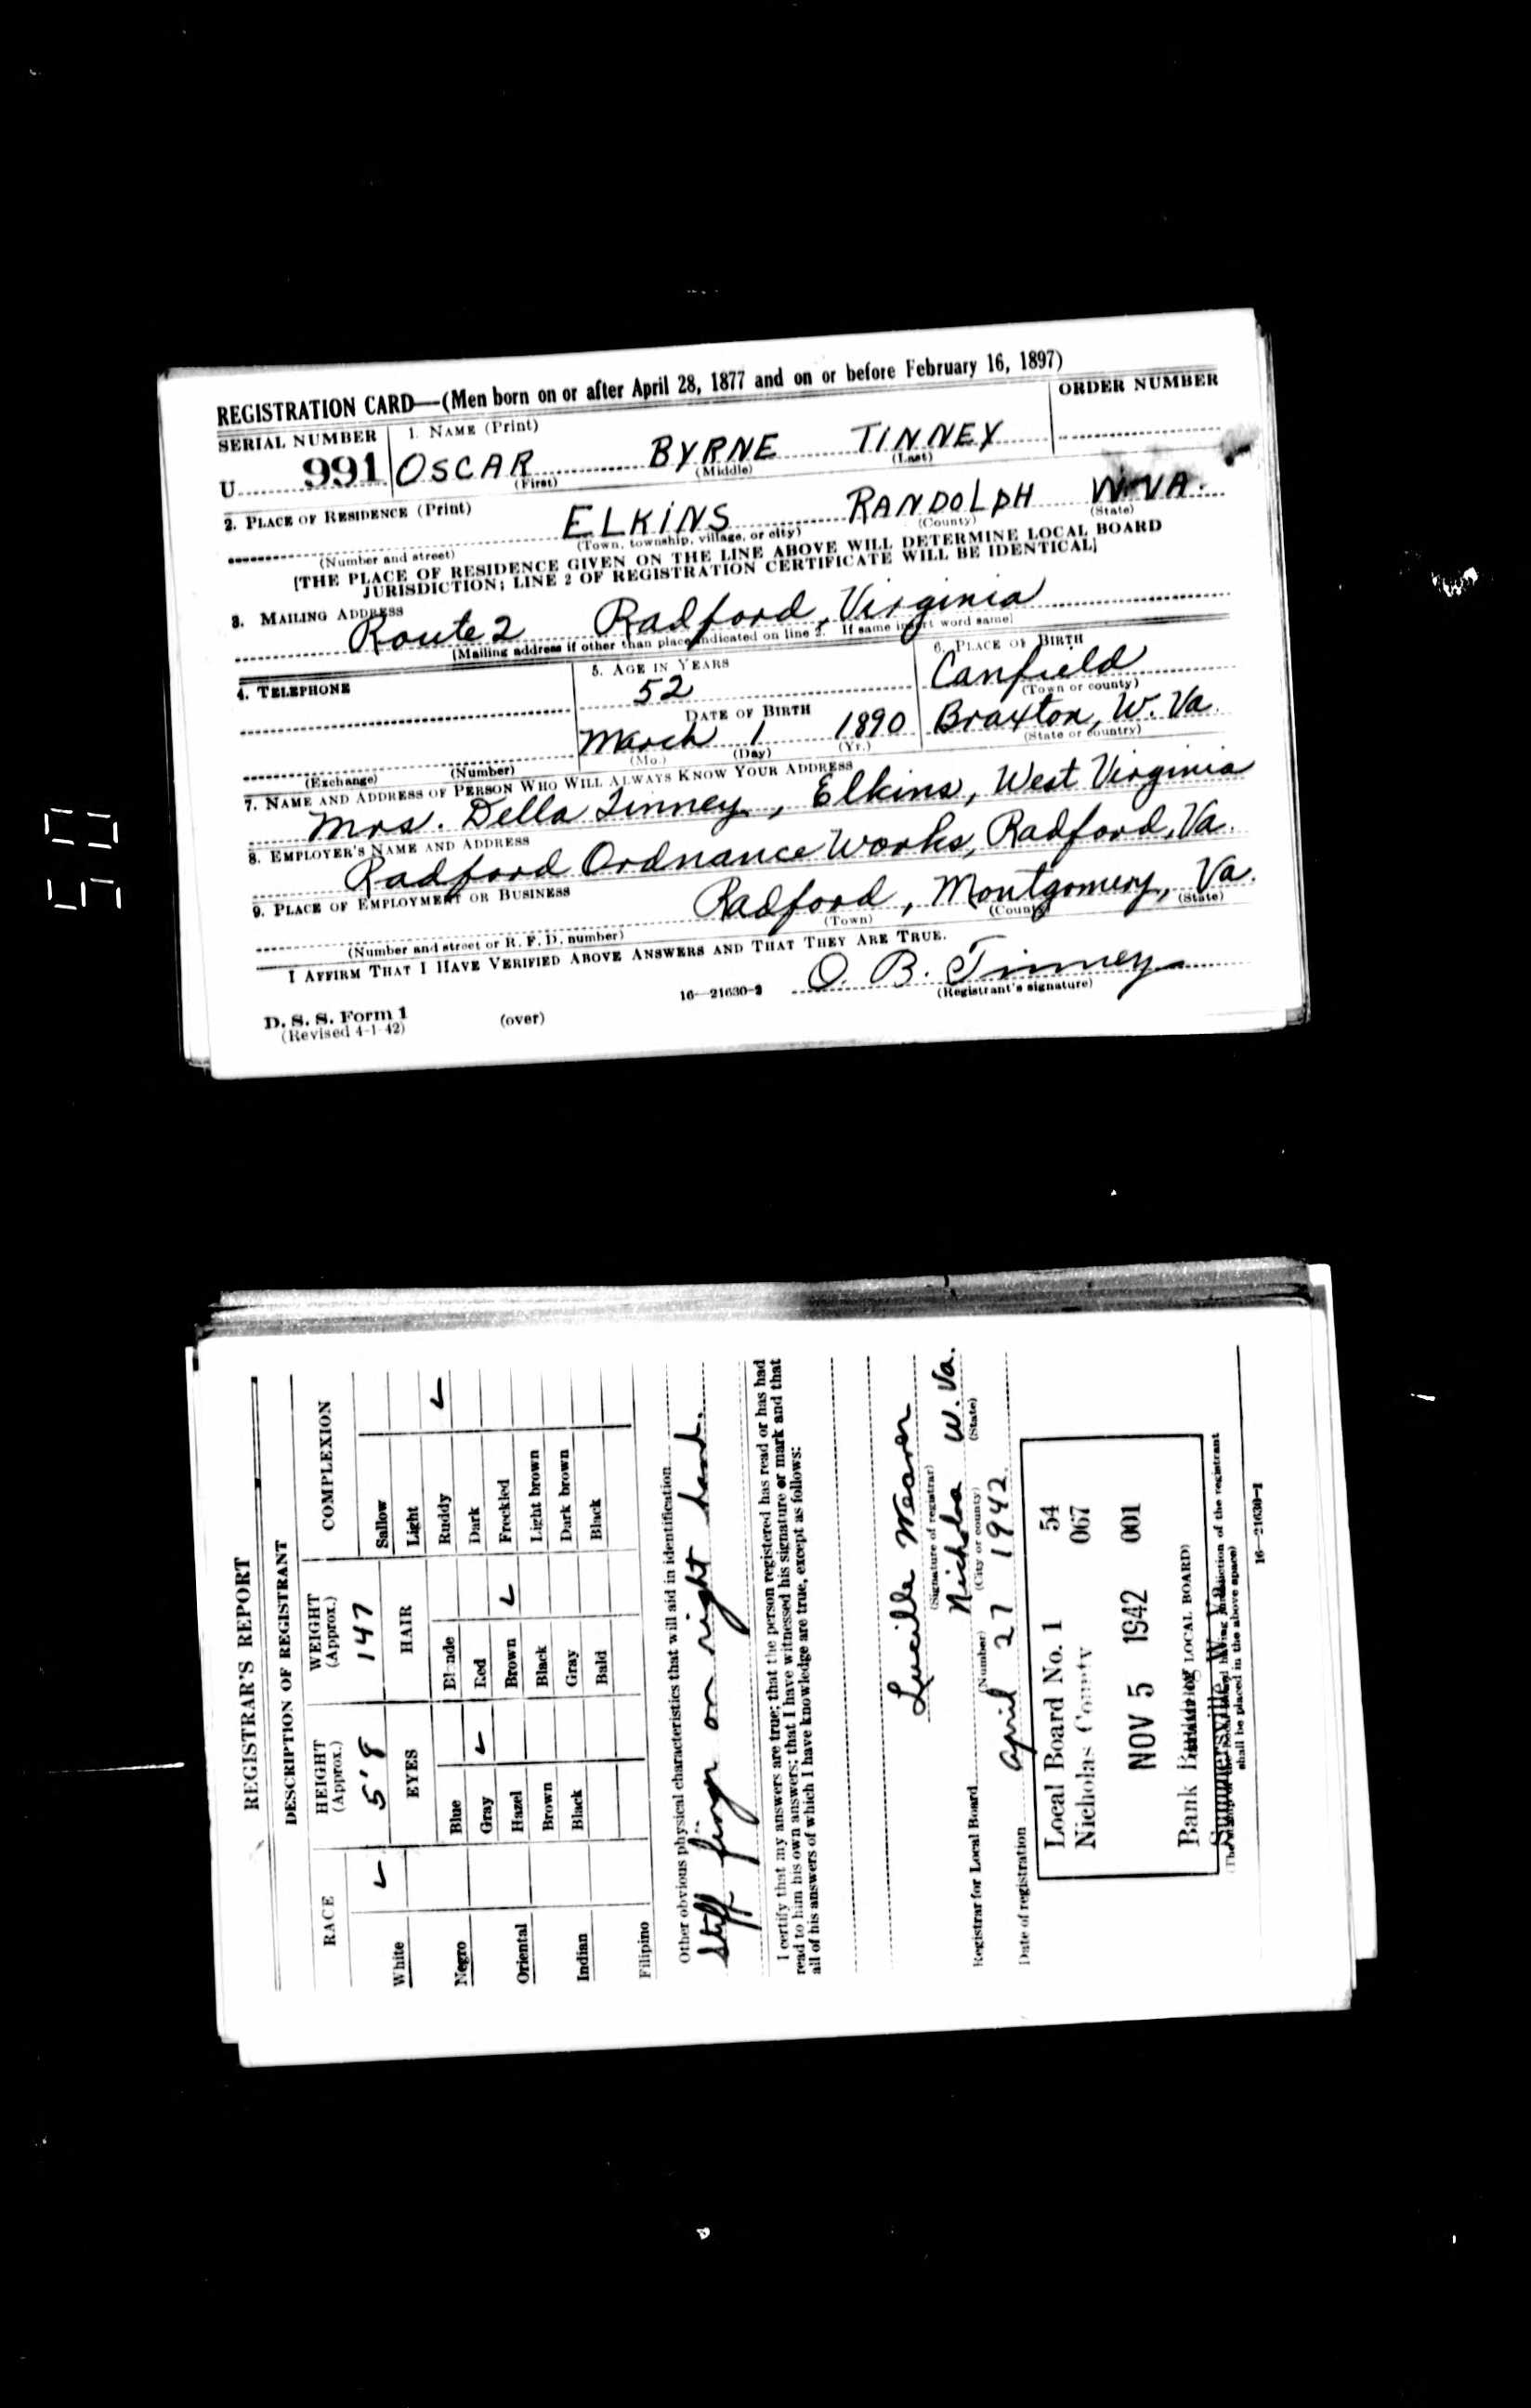 REGISTRATION CARD—(Men born on or after April 28, 1877 and on or before February 16, 1897)
SERIAL NUMBER
1. NAME (Print)
ORDER NUMBER
U 991
OSCAR BYRNE TINNEY
(First) (Middle) (Last)
2. PLACE OF RESIDENCE (Print)
ELKINS RANDOLPH W.VA.
(Number and street) (Town, township, village, or city) (County) (State)
[THE PLACE OF RESIDENCE GIVEN ON THE LINE ABOVE WILL DETERMINE LOCAL BOARD
JURISDICTION; LINE 2 OF REGISTRATION CERTIFICATE WILL BE IDENTICAL]
3. MAILING ADDRESS
Route 2 Radford, Virginia
[Mailing address if other than place indicated on line 2. If same insert word same]
4. TELEPHONE
5. AGE IN YEARS
6. PLACE OF BIRTH
52
Canfield
(Town or county)
DATE OF BIRTH
March 1 1890
Braxton, W. Va.
(Exchange) (Number) (Mo.) (Day) (Yr.) (State or country)
7. NAME AND ADDRESS OF PERSON WHO WILL ALWAYS KNOW YOUR ADDRESS
Mrs. Della Tinney, Elkins, West Virginia
8. EMPLOYER'S NAME AND ADDRESS
Radford Ordnance Works, Radford, Va.
9. PLACE OF EMPLOYMENT OR BUSINESS
Radford, Montgomery, Va.
(Number and street or R. F. D. number) (Town) (County) (State)
I AFFIRM THAT I HAVE VERIFIED ABOVE ANSWERS AND THAT THEY ARE TRUE.
O. B. Tinney
D. S. S. Form 1
(Revised 4-1-42)
(over)
16—21630-2
(Registrant's signature)
REGISTRAR'S REPORT
DESCRIPTION OF REGISTRANT
RACE
HEIGHT (Approx.)
WEIGHT (Approx.)
COMPLEXION
White ✓
5'8
147
Sallow
EYES
HAIR
Light
Negro
Blue
Blonde
Ruddy ✓
Gray ✓
Red
Dark
Oriental
Hazel
Brown ✓
Freckled
Brown
Black
Light brown
Indian
Black
Gray
Dark brown
Bald
Black
Filipino
Other obvious physical characteristics that will aid in identification
Stiff finger on right hand.
I certify that my answers are true; that the person registered has read or has had
read to him his own answers; that I have witnessed his signature or mark and that
all of his answers of which I have knowledge are true, except as follows:
Lucille Weaver
(Signature of registrar)
Registrar for Local Board Nicholas W. Va.
(Number) (City or county) (State)
Date of registration April 27 1942
Local Board No. 1 54
Nicholas County 067
NOV 5 1942 001
Bank Building
LOCAL BOARD)
Summersville, W. Va.
(The stamp of the Local Board having jurisdiction of the registrant
shall be placed in the above space)
16—21630-1